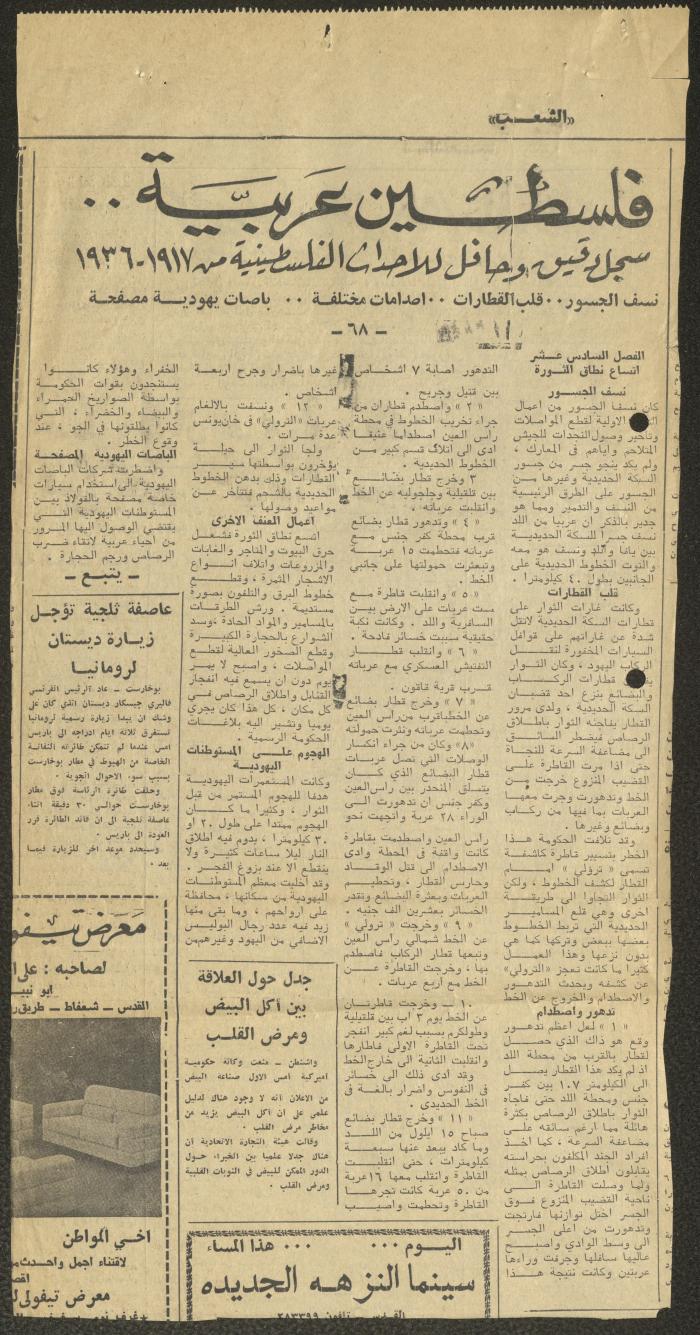 «الشعب»
فلسطين عربية ..
سجل دقيق وحافل للاحداث الفلسطينية من ١٩١٧-١٩٣٦
نسف الجسور .. قلب القطارات .. اصدامات مختلفة .. باصات يهودية مصفحة
- ٦٨ -
الفصل السادس عشر
اتساع نطاق الثورة
نسف الجسور
كان نسف الجسور من اعمال
الاولية لقطع المواصلات
وتأخير وصول النجدات للجيش
المتلاحم واياهم في المعارك ،
ولم يكد ينجو جسر من جسور
السكة الحديدية وغيرها من
الجسور على الطرق الرئيسية
من النسف والتدمير ومما هو
جدير بالذكر ان عربيا من اللد
نسف جسرا السكة الحديدية
بين يافا واللد ونسف هو معه
والتوت الخطوط الحديدية على
الجانبين بطول ٤٠ كيلومترا .
قلب القطارات
وكانت غارات الثوار على
قطارات السكة الحديدية لاتقل
شدة عن غاراتهم على قوافل
السيارات المخفورة لنقل
الركاب اليهود ، وكان الثوار
قطارات الركاب
والبضائع بنزع احد قضبان
السكة الحديدية ، ولدى مرور
القطار يفاجئه الثوار باطلاق
الرصاص فيضطر السائق
الى مضاعفة السرعة للنجاة
حتى اذا مرت القاطرة على
القضيب المنزوع خرجت من
الخط وتدهورت وجرت معها
العربات بما فيها من ركاب
وبضائع وغيرها .
وقد تلافت الحكومة هذا
الخطر بتسيير قاطرة كاشفة
تسمى « ترولي » امام
القطار لكشف الخطوط ، ولكن
الثوار التجاوا الى طريقة
اخرى وهي قلع المسامير
الحديدية التي تربط الخطوط
بعضها ببعض وتركها كما هي
بدون نزعها وهذا العمل
كثيرا ما كانت تعجز «الترولي»
عن كشفه ويحدث التدهور
والاصطدام والخروج عن الخط
تدهور واصطدام
« ١ » لعل اعظم تدهور
وقع هو ذاك الذي حصل
لقطار بالقرب من محطة اللد
اذ لم يكد هذا القطار يصل
الى الكيلومتر ١٠٧ بين كفر
جنس ومحطة اللد حتى فاجأه
الثوار باطلاق الرصاص بكثرة
هائلة مما ارغم سائقه على
مضاعفة السرعة ، كما اخذ
افراد الجند المكلفون بحراسته
يقابلون اطلاق الرصاص بمثله
ولما وصلت القاطرة الى
ناحية القضيب المنزوع فوق
الجسر اختل توازنها فارتجت
وتدهورت من اعلى الجسر
الى وسط الوادي واصبح
عاليها سافلها وجرفت وراءها
عربتين وكانت نتيجة هذا
التدهور اصابة ٧ اشخاص
بين قتيل وجريح .
« ٢ » واصطدم قطاران من
جراء تخريب الخطوط في محطة
راس العين اصطداما عنيفا
ادى الى اتلاف قسم كبير من
الخطوط الحديدية .
٣ وخرج قطار بضائع
بين قلقيلية وجلجولية عن الخط
وانقلبت عرباته .
« ٤ » وتدهور قطار بضائع
قرب محطة كفر جنس مع
عرباته فتحطمت ١٥ عربة
وتبعثرت حمولتها على جانبي
الخط .
« ٥ » وانقلبت قاطرة مع
ست عربات على الارض بين
السافرية واللد . وكانت نكبة
حقيقية سببت خسائر فادحة .
« ٦ » وانقلب قطار
التفتيش العسكري مع عرباته
قرب قرية قاقون .
« ٧ » وخرج قطار بضائع
عن الخط بالقرب من راس العين
وتحطمت عرباته ونثرت حمولته
«٨» وكان من جراء انكسار
الوصلات التي تصل عربات
قطار البضائع الذي كان
يتسلق المنحدر بين راس العين
وكفر جنس ان تدهورت الى
الوراء ٢٨ عربة واتجهت نحو
راس العين واصطدمت بقاطرة
كانت واقفة في المحطة وادى
الاصطدام الى قتل الوقاد
وحارس القطار ، وتحطيم
العربات وبعثرة البضائع وتقدر
الخسائر بعشرين الف جنيه .
« ٩ » وخرجت « ترولي »
عن الخط شمالي راس العين
وتبعها قطار الركاب فاصطدم
بها ، وخرجت القاطرة عن
الخط مع اربع عربات .
١٠ - وخرجت قاطرتان
عن الخط يوم ٣ آب بين قلقيلية
وطولكرم بسبب لغم كبير انفجر
تحت القاطرة الاولى فاطارها
وانقلبت الثانية الى خارج الخط
وقد ادى ذلك الى خسائر
في النفوس واضرار بالغة في
الخط الحديدي .
« ١١ » وخرج قطار بضائع
صباح ١٥ ايلول من اللد
وما كاد يبعد عنها سبعة
كيلومترات ، حتى انقلبت
القاطرة وانقلب معها ١٦ عربة
من ٥٠ عربة كانت تجرها
القاطرة وتحطمت واصيب
غيرها باضرار وجرح اربعة
اشخاص .
« ١٢ » ونسفت بالالغام
عربات «الترولي» في خان يونس
عدة مرات .
ولجأ الثوار الى حيلة
يؤخرون بواسطتها سير
القطارات وذلك بدهن الخطوط
الحديدية بالشحم فتتأخر عن
مواعيد وصولها .
اعمال العنف الاخرى
اتسع نطاق الثورة فشمل
حرق البيوت والمتاجر والغابات
والمزروعات واتلاف انواع
الاشجار المثمرة ، وقطع
خطوط البرق والتلفون بصورة
مستديمة . ورش الطرقات
بالمسامير والمواد الحادة ، وسد
الشوارع بالحجارة الكبيرة
وقطع الصخور العالية لقطع
المواصلات ، واصبح لا يمر
يوم دون ان يسمع فيه انفجار
القنابل واطلاق الرصاص في
كل مكان ، كل هذا كان يجري
يوميا وتشير اليه بلاغات
الحكومة الرسمية .
الهجوم على المستوطنات
اليهودية
وكانت المستعمرات اليهودية
هدفا للهجوم المستمر من قبل
الثوار ، وكثيرا ما كان
الهجوم ممتدا على طول ٢٠ او
٣٠ كيلومترا ، يدوم فيه اطلاق
النار ليلا ساعات كثيرة ولا
ينقطع الا عند بزوغ الفجر .
وقد اخليت معظم المستوطنات
اليهودية من سكانها ، محافظة
على ارواحهم ، وما بقي منها
زيد فيه عدد رجال البوليس
الاضافي من اليهود وغيرهم من
الخفراء وهؤلاء كانوا
يستنجدون بقوات الحكومة
بواسطة الصواريخ الحمراء
والبيضاء والخضراء ، التي
كانوا يطلقونها في الجو ، عند
وقوع الخطر .
الباصات اليهودية المصفحة
واضطرت شركات الباصات
اليهودية الى استخدام سيارات
خاصة مصفحة بالفولاذ بين
المستوطنات اليهودية التي
يقتضي الوصول اليها المرور
من احياء عربية لاتقاء ضرب
الرصاص ورجم الحجارة .
- يتبع -
عاصفة ثلجية تؤجل
زيارة ديستان
لرومانيا
بوخارست - عاد الرئيس الفرنسي
فاليري جيسكار ديستان الذي كان على
وشك ان يبدأ زيارة رسمية لرومانيا
تستغرق ثلاثة ايام ادراجه الى باريس
امس عندما لم تتمكن طائرته النفاثة
الخاصة من الهبوط في مطار بوخارست
بسبب سوء الاحوال الجوية .
وحلقت طائرة الرئاسة فوق مطار
بوخارست حوالي ٣٠ دقيقة اثناء
عاصفة ثلجية الى ان قائد الطائرة قرر
العودة الى باريس .
وسيحدد موعد اخر للزيارة فيما
بعد .
جدل حول العلاقة
بين أكل البيض
ومرض القلب
واشنطن - منعت وكالة حكومية
اميركية امس الاول صناعة البيض
من الاعلان انه لا وجود هناك لدليل
علمي على ان أكل البيض يزيد من
مخاطر مرض القلب .
وقالت هيئة التجارة الاتحادية ان
هناك جدلا علميا بين الخبراء حول
الدور الممكن للبيض في النوبات القلبية
ومرض القلب .
معرض تيفو
لصاحبه : علي
ابو نبيـ
القدس - شعفاط - طريق ر
اخي المواطن
لاقتناء اجمل واحدث
معرض تيفولي
اليوم ... ... هذا المساء
سينما النزهه الجديده
القدس تلفون ٢٨٣٣٩٩